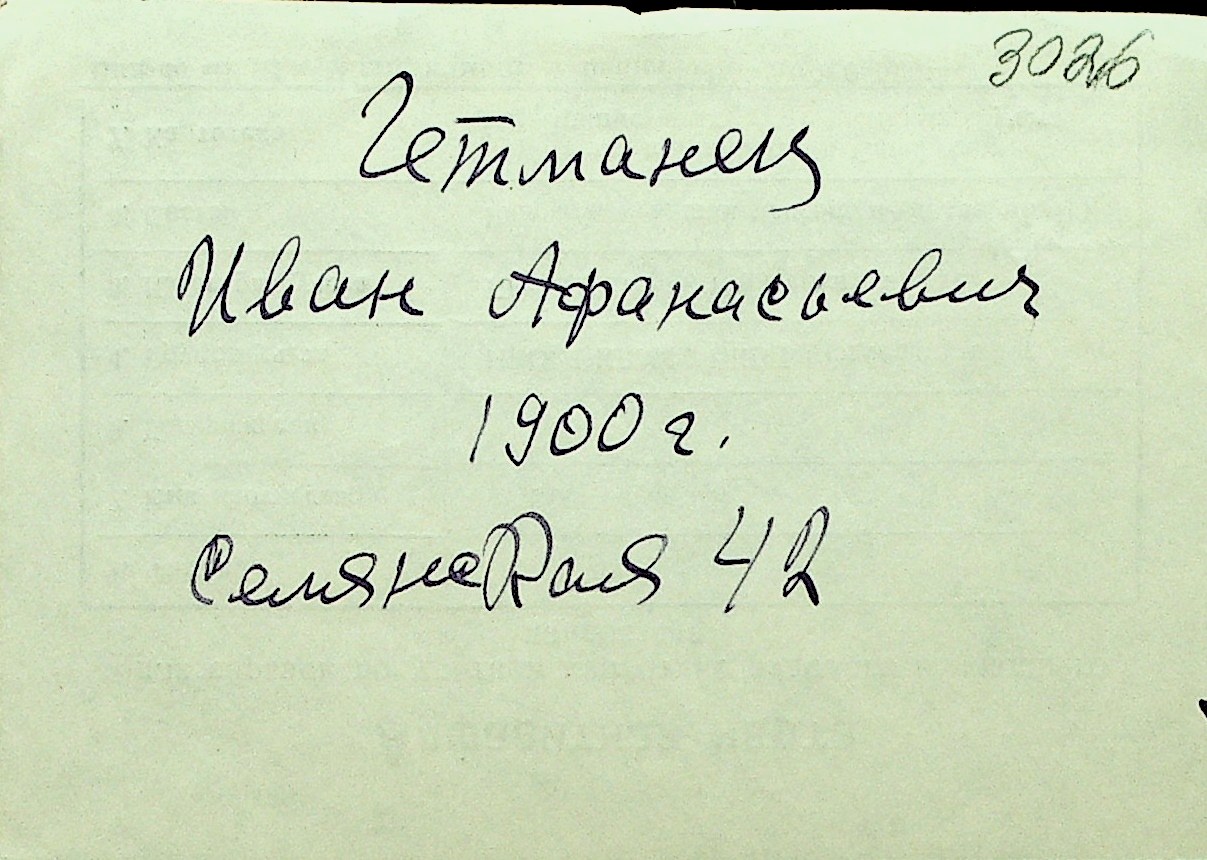 3026
Гетманец
Иван Афанасьевич
1900 г.
Семянская 42